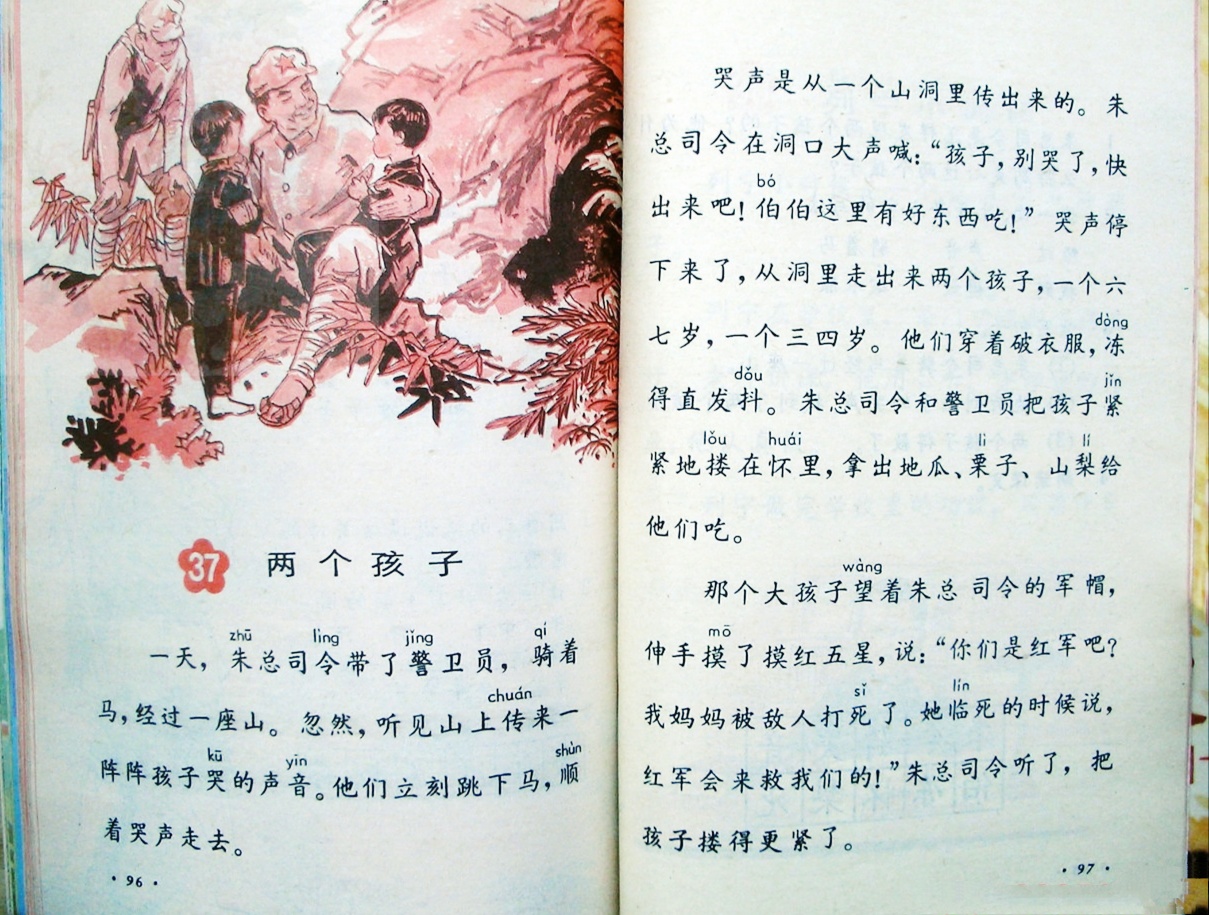 37 两个孩子
zhū lìng jǐng qí
一天，朱总司令带了警卫员，骑着
chuán
马，经过一座山。忽然，听见山上传来一
kū yīn shùn
阵阵孩子哭的声音。他们立刻跳下马，顺
着哭声走去。
·96·
哭声是从一个山洞里传出来的。朱
总司令在洞口大声喊：“孩子，别哭了，快
bó
出来吧！伯伯这里有好东西吃！”哭声停
下来了，从洞里走出来两个孩子，一个六
dòng
七岁，一个三四岁。他们穿着破衣服，冻
dǒu jǐn
得直发抖。朱总司令和警卫员把孩子紧
lǒu huái lì lí
紧地搂在怀里，拿出地瓜、栗子、山梨给
他们吃。
wàng
那个大孩子望着朱总司令的军帽，
mō
伸手摸了摸红五星，说：“你们是红军吧？
sǐ lín
我妈妈被敌人打死了。她临死的时候说，
红军会来救我们的！”朱总司令听了，把
孩子搂得更紧了。
·97·